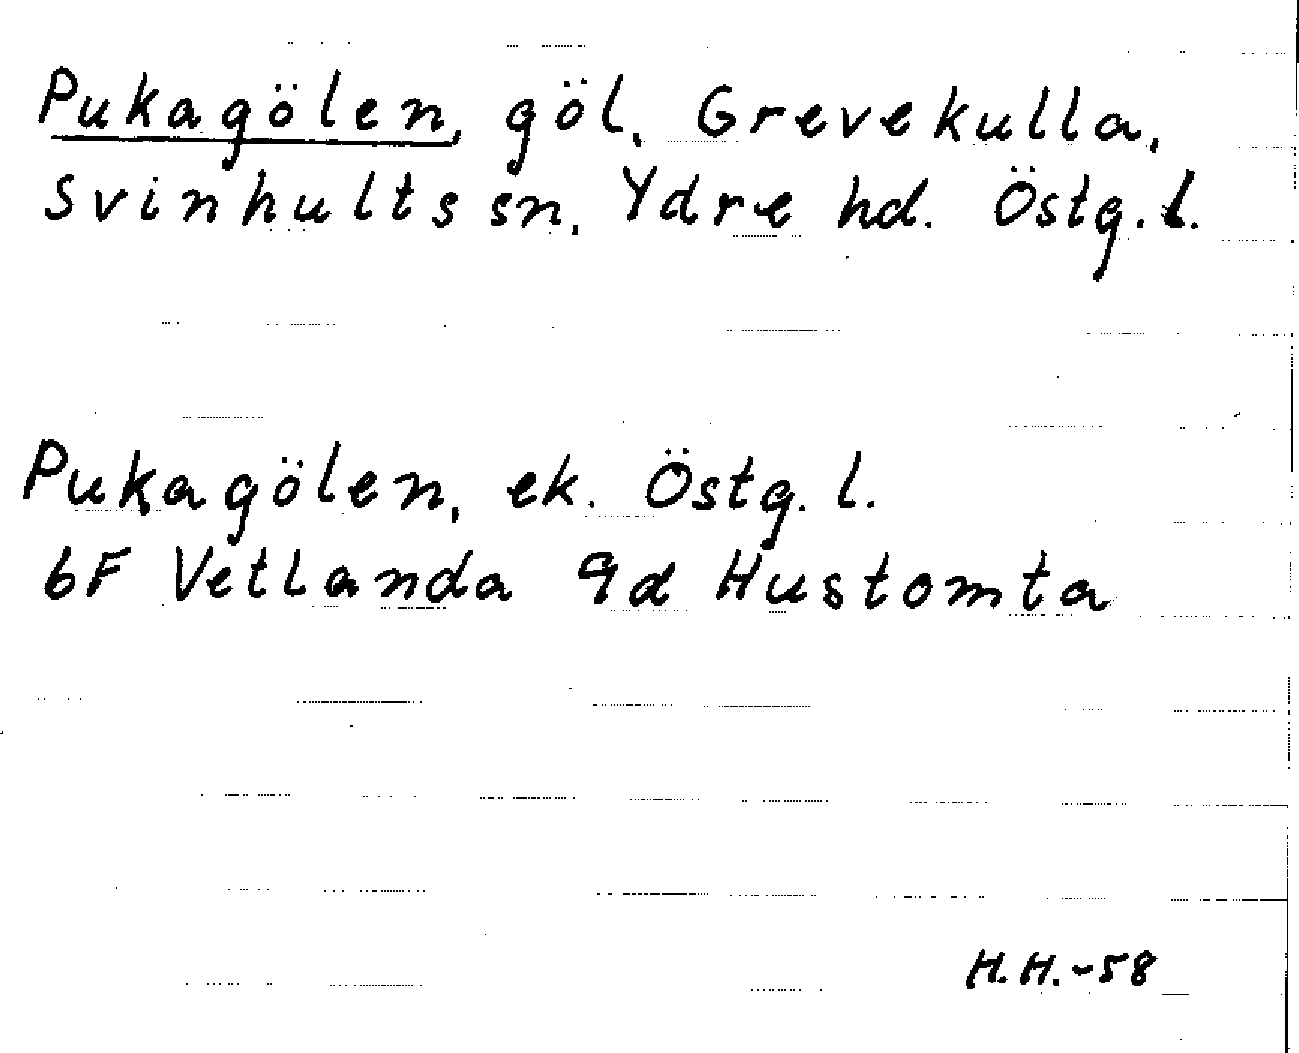 Pukagölen, göl, Grevekulla,
Svinhults sn, Ydre hd. Östg.l.
Pukagölen, ek. Östg. l.
6F Vetlanda 9d Hustomta
H.H.-58